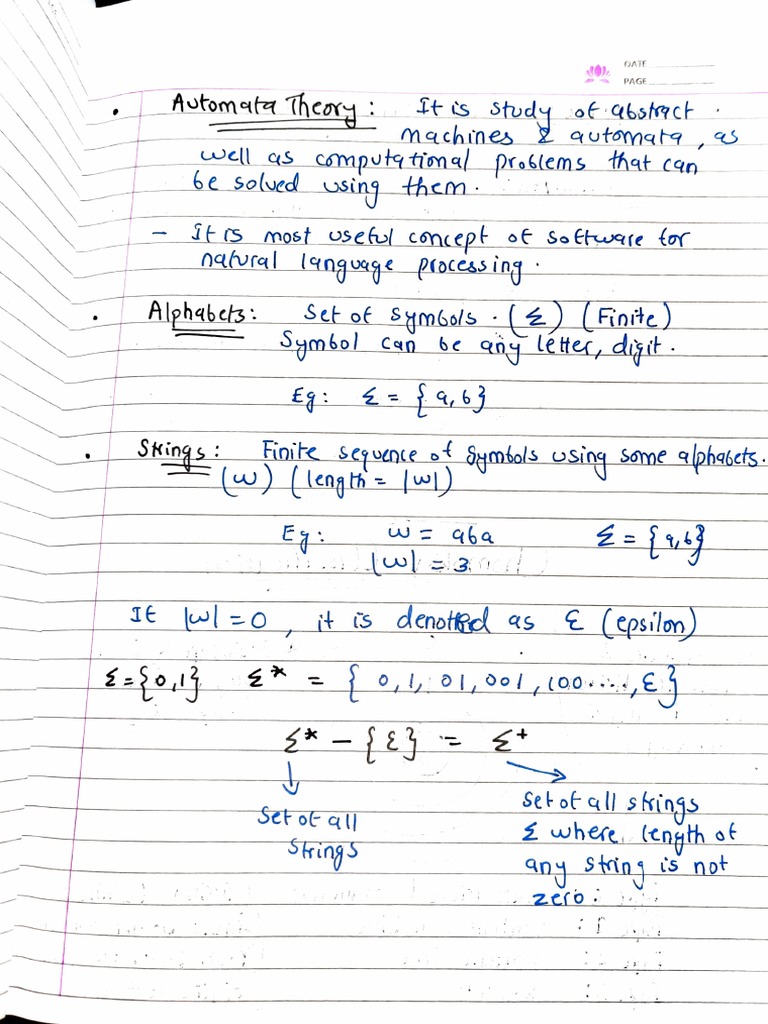 DATE
PAGE
• Automata Theory : It is study of abstract
machines & automata, as
well as computational problems that can
be solved using them.
- It is most useful concept of software for
natural language processing.
• Alphabets : Set of symbols. (Σ) (Finite)
Symbol can be any letter, digit.
Eg: Σ = {a,b}
• Strings : Finite sequence of symbols using some alphabets.
(w) (length = |w|)
Eg: w = aba Σ = {a,b}
|w| = 3
If |w| = 0, it is denoted as ε (epsilon)
Σ = {0,1} Σ* = { 0, 1, 01, 001, 100 ....., ε}
Σ* - {ε} = Σ+
↓ →
Set of all
strings
Set of all strings
Σ where length of
any string is not
zero.